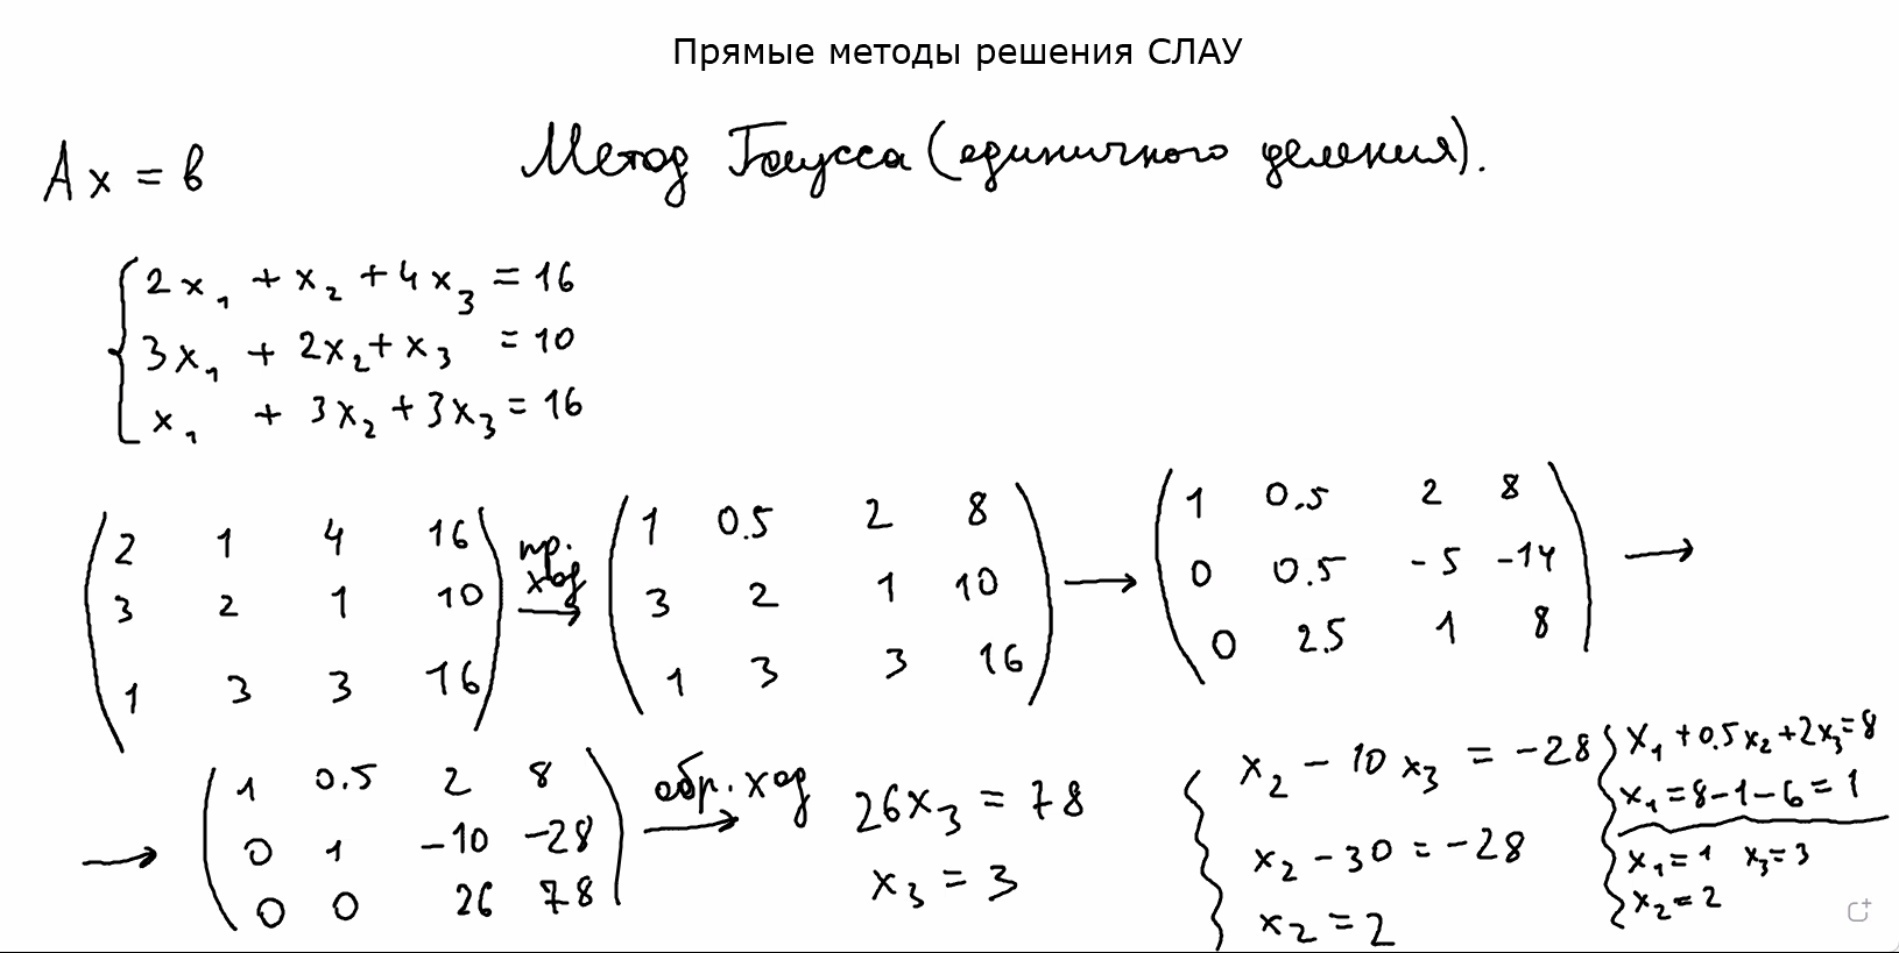 Прямые методы решения СЛАУ
Ax = b
Метод Гаусса (единичного деления).
2x₁ + x₂ + 4x₃ = 16
3x₁ + 2x₂ + x₃ = 10
x₁ + 3x₂ + 3x₃ = 16
2 1 4 16
3 2 1 10
1 3 3 16
пр. ход →
1 0.5 2 8
3 2 1 10
1 3 3 16
→
1 0.5 2 8
0 0.5 -5 -14
0 2.5 1 8
→
→
1 0.5 2 8
0 1 -10 -28
0 0 26 78
обр. ход →
26x₃ = 78
x₃ = 3
x₂ - 10x₃ = -28
x₂ - 30 = -28
x₂ = 2
x₁ + 0.5x₂ + 2x₃ = 8
x₁ = 8-1-6 = 1
x₁ = 1 x₃ = 3
x₂ = 2